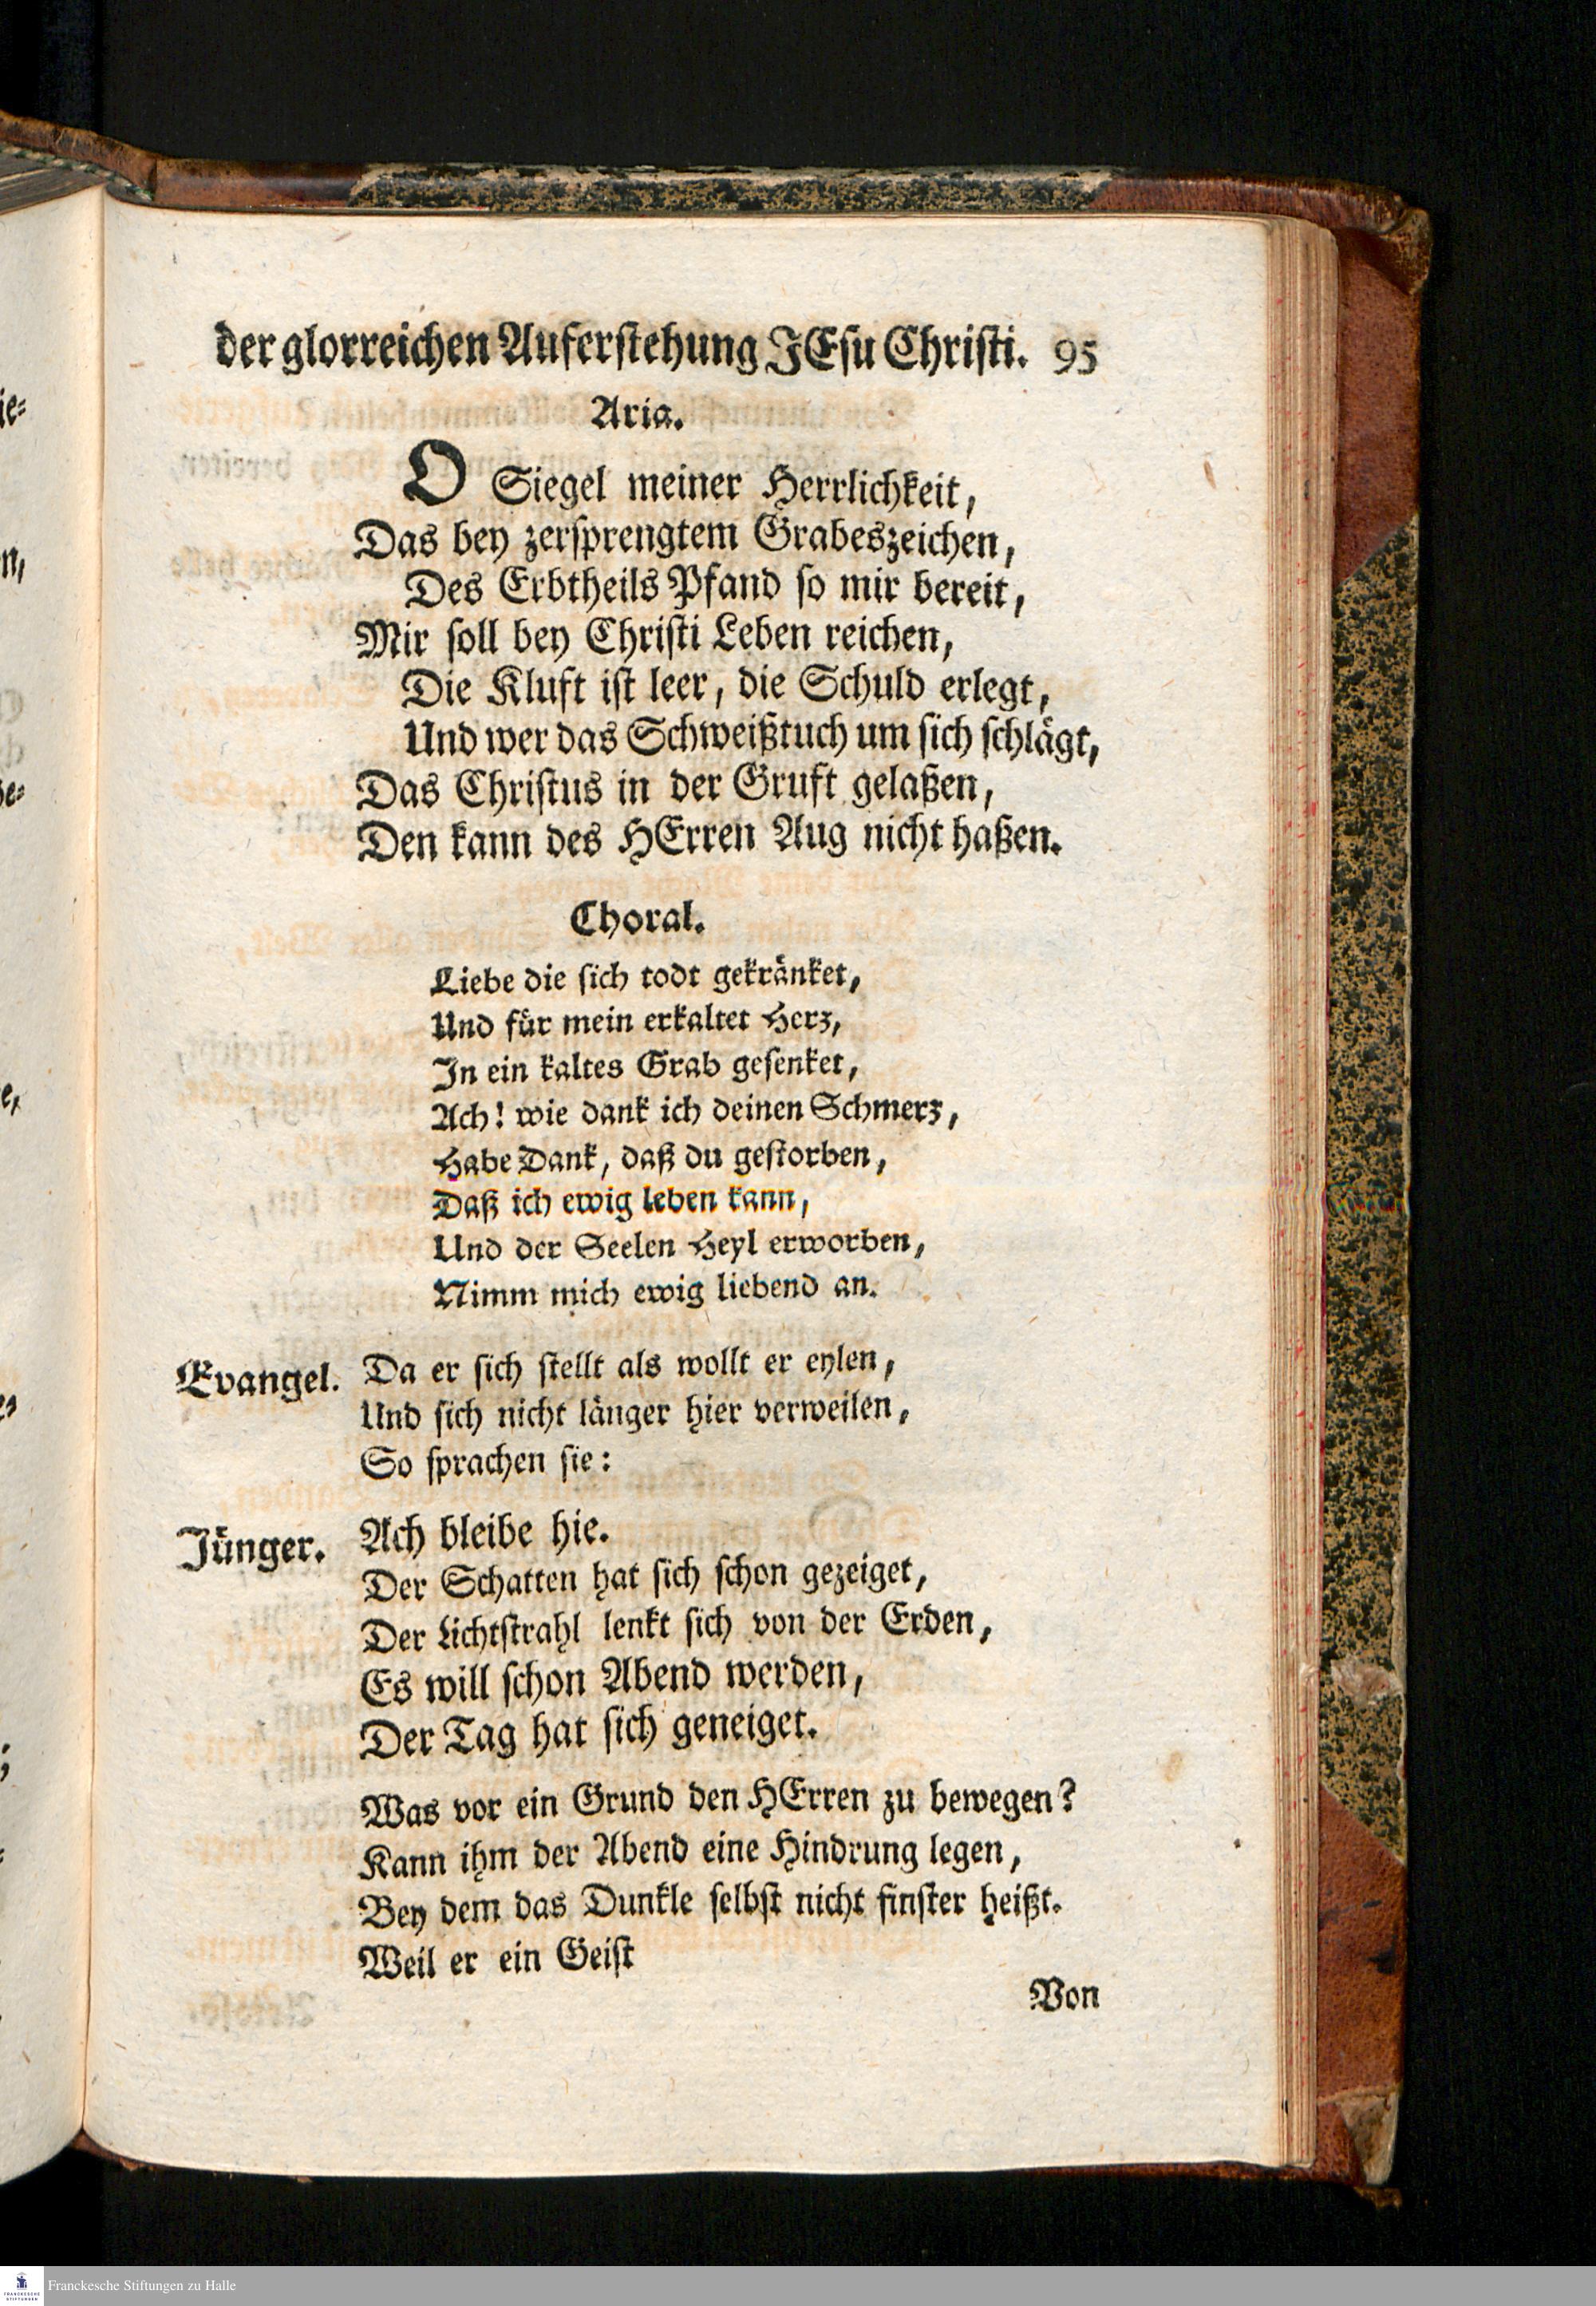 der glorreichen Auferstehung JEsu Christi. 95
Aria.
O Siegel meiner Herrlichkeit,
Das bey zersprengtem Grabeszeichen,
Des Erbtheils Pfand so mir bereit,
Mir soll bey Christi Leben reichen,
Die Kluft ist leer, die Schuld erlegt,
Und wer das Schweißtuch um sich schlägt,
Das Christus in der Gruft gelaßen,
Den kann des HErren Aug nicht haßen.
Choral.
Liebe die sich todt gekränket,
Und für mein erkaltet Herz,
In ein kaltes Grab gesenket,
Ach! wie dank ich deinen Schmerz,
Habe Dank, daß du gestorben,
Daß ich ewig leben kann,
Und der Seelen Heyl erworben,
Nimm mich ewig liebend an.
Evangel. Da er sich stellt als wollt er eylen,
Und sich nicht länger hier verweilen,
So sprachen sie:
Jünger. Ach bleibe hie.
Der Schatten hat sich schon gezeiget,
Der Lichtstrahl lenkt sich von der Erden,
Es will schon Abend werden,
Der Tag hat sich geneiget.
Was vor ein Grund den HErren zu bewegen?
Kann ihm der Abend eine Hindrung legen,
Bey dem das Dunkle selbst nicht finster heißt.
Weil er ein Geist
Von
Franckesche Stiftungen zu Halle